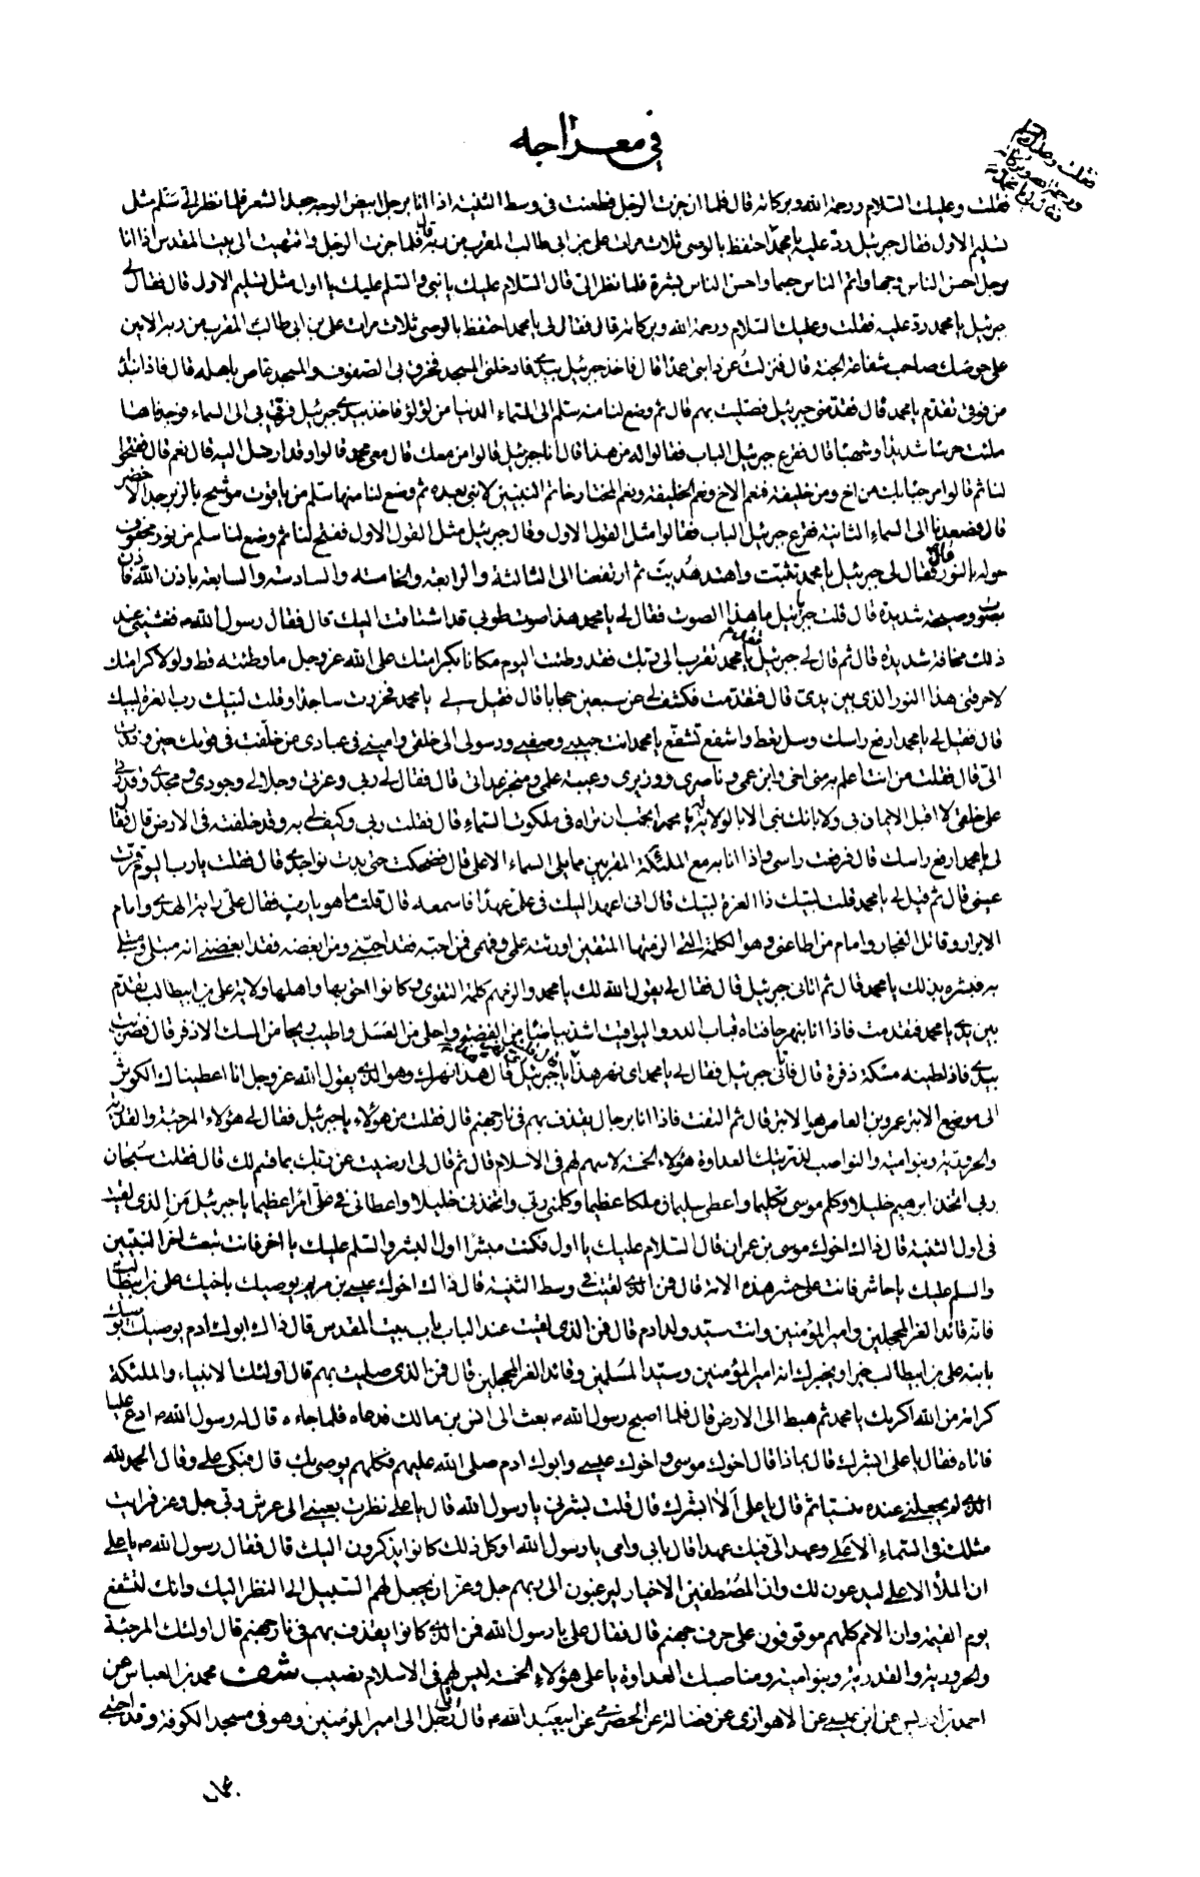 في معراجه
فقلت وعليك السلام ورحمة الله وبركاته قال فلما ان جزت الرجل فطعنت في وسط الثنية اذا انا برجل ابيض الوجه جعد الشعر فلما نظر الي سلم مثل
تسليم الاول فقال جبرئيل رد عليه يا محمد احتفظ بالوصي ثلاث مرات علي بن ابي طالب المقرب من ربه قال فلما جزت الرجل وانتهيت الى بيت المقدس اذا انا
برجل احسن الناس وجها واتم الناس جسما واحسن الناس بشرة فلما نظر الي قال السلام عليك يا نبي والسلم عليك يا اول مثل تسليم الاول قال فقال لي
جبرئيل يا محمد رد عليه فقلت وعليك السلام ورحمة الله وبركاته قال فقال لي يا محمد احتفظ بالوصي ثلاث مرات علي بن ابي طالب المقرب من ربه الامين
على حوضك صاحب شفاعة الجنة قال فنزلت عن دابتي عمدا قال فاخذ جبرئيل بيدي فادخلني المسجد فخرق بي الصفوف والمسجد غاص باهله قال فاذا بنداء
من فوقي تقدم يا محمد قال فقدمني جبرئيل فصليت بهم قال ثم وضع لنا منه سلم الى السماء الدنيا من لؤلؤ فاخذ بيدي جبرئيل فرقى بي الى السماء فوجدناها
ملئت حرسا شديدا وشهبا قال فقرع جبرئيل الباب فقالوا له من هذا قال انا جبرئيل قالوا من معك قال معي محمد قالوا وقد ارسل اليه قال نعم قال ففتحوا
لنا ثم قالوا مرحبا بك من اخ ومن خليفة فنعم الاخ ونعم الخليفة ونعم المختار خاتم النبيين لا نبي بعده ثم وضع لنا منها سلم من ياقوت موشح بالزبرجد الاخضر
قال فصعدنا الى السماء الثانية فقرع جبرئيل الباب فقالوا مثل القول الاول وقال جبرئيل مثل القول الاول ففتح لنا ثم وضع لنا سلم من نور محفوف
حوله بالنور قال فقال لي جبرئيل يا محمد تثبت واهتد هديت ثم ارتفعنا الى الثالثة والرابعة والخامسة والسادسة والسابعة باذن الله فاذا
بصوت وصيحة شديدة قال قلت يا جبرئيل ما هذا الصوت فقال لي يا محمد هذا صوت طوبى قد اشتاقت اليك قال فقال رسول الله ص فغشيني عند
ذلك مخافة شديدة قال ثم قال لي جبرئيل يا محمد تقرب الى ربك فقد وطئت اليوم مكانا بكرامتك على الله عز وجل ما وطئته قط ولولا كرامتك
لاحرقني هذا النور الذي بين يدي قال فتقدمت فكشف لي عن سبعين حجابا قال فقيل لي يا محمد فخررت ساجدا وقلت لبيك رب العزة لبيك
قال فقيل لي يا محمد ارفع راسك وسل تعط واشفع تشفع يا محمد انت حبيبي وصفيي ورسولي الى خلقي واميني في عبادي من خلفت في قومك حين وفدت
الي قال فقلت من انت اعلم به مني اخي وابن عمي وناصري ووزيري وعيبة علمي ومنجز عداتي قال فقال لي ربي وعزتي وجلالي وجودي ومجدي وقدرتي
على خلقي لا اقبل الايمان بي ولا بانك نبي الا بالولاية له يا محمد اتحب ان تراه في ملكوت السماء قال فقلت ربي وكيف لي به وقد خلفته في الارض قال فقال
لي يا محمد ارفع راسك قال فرفعت راسي واذا انا به مع الملئكة المقربين مما يلي السماء الاعلى قال فضحكت حتى بدت نواجذي قال فقلت يا رب اليوم قرت
عيني قال ثم قيل لي يا محمد قلت لبيك ذا العزة لبيك قال اني اعهد اليك في علي عهدا فاسمعه قال قلت ما هو يا رب فقال علي راية الهدى وامام
الابرار وقاتل الفجار وامام من اطاعني وهو الكلمة التي الزمتها المتقين اورثته علمي وفهمي فمن احبه فقد احبني ومن ابغضه فقد ابغضني انه مبتلى ومبتلى
به فبشره بذلك يا محمد قال ثم اتاني جبرئيل قال فقال لي يقول الله لك يا محمد والزمهم كلمة التقوى وكانوا احق بها واهلها ولاية علي بن ابيطالب تقدم
بين يدي يا محمد فتقدمت فاذا انا بنهر حافتاه قباب الدر واليواقيت اشد بياضا من الفضة واحلى من العسل واطيب ريحا من المسك الاذفر قال فضربت
بيدي فاذا طينه مسكة ذفرة قال فاتاني جبرئيل فقال لي يا محمد اي نهر هذا يا جبرئيل قال هذا نهرك وهو الذي يقول الله عز وجل انا اعطيناك الكوثر
الى موضع الابتر عمرو بن العاص هو الابتر قال ثم التفت فاذا انا برجال يقذف بهم في نار جهنم قال فقلت من هؤلاء يا جبرئيل فقال لي هؤلاء المرجئة والقدرية
والحرورية وبنو امية والنواصب لذريتك العداوة هؤلاء الخمسة لا سهم لهم في الاسلام قال ثم قال لي ارضيت عن ربك بما قسم لك قال فقلت سبحان
ربي اتخذ ابرهيم خليلا وكلم موسى تكليما واعطى سليمان ملكا عظيما وكلمني ربي واتخذني خليلا واعطاني في علي امرا عظيما يا جبرئيل من الذي لقيت
في اول الثنية قال ذاك اخوك موسى بن عمران قال السلام عليك يا اول فكنت مبشرا اول البشر والسلم عليك يا اخر فانت تبعث اخر النبيين
والسلم عليك يا حاشر فانت على حشر هذه الامة قال فمن الذي لقيت في وسط الثنية قال ذاك اخوك عيسى بن مريم يوصيك باخيك علي بن ابيطالب
فانه قائد الغر المحجلين وامير المؤمنين وانت سيد ولد ادم قال فمن الذي لقيت عند الباب باب بيت المقدس قال ذاك ابوك ادم يوصيك
بابنه علي بن ابيطالب خيرا ويخبرك انه امير المؤمنين وسيد المسلمين وقائد الغر المحجلين قال فمن الذي صليت بهم قال اولئك الانبياء والملئكة
كرامة من الله اكرمك يا محمد ثم هبط الى الارض قال فلما اصبح رسول الله ص بعث الى انس بن مالك فدعاه فلما جاءه قال له رسول الله ص ادع عليا
فاتاه فقال يا علي ابشرك قال بماذا قال اخوك موسى واخوك عيسى وابوك ادم صلى الله عليهم فكلهم يوصي بك قال فبكى علي وقال الحمد لله
الذي لم يجعلني عنده منسيا ثم قال يا علي الا ابشرك قال قلت بشرني يا رسول الله قال يا علي نظرت بعيني الى عرش ربي جل وعز فرايت
مثلك في السماء الاعلى وعهد الي فيك عهدا قال بابي وامي يا رسول الله اوكل ذلك كانوا يذكرون اليك قال فقال رسول الله ص يا علي
ان الملأ الاعلى ليدعون لك وان المصطفين الاخيار ليرغبون الى ربهم جل وعز ان يجعل لهم السبيل الى النظر اليك وانك لتشفع
يوم القيمة وان الامم كلهم موقوفون على جرف جهنم قال فقال علي يا رسول الله فمن الذي كانوا يقذف بهم في نار جهنم قال اولئك المرجئة
والحرورية والقدرية وبنو امية ومناصبك العداوة يا علي هؤلاء الخمسة ليس لهم في الاسلام نصيب شف محمد بن العباس عن
احمد بن ادريس عن ابن عيسى عن الاهوازي عن فضالة عن الحضرمي عن ابيعبد الله ع قال اتى رجل الى امير المؤمنين وهو في مسجد الكوفة وقد احتبى